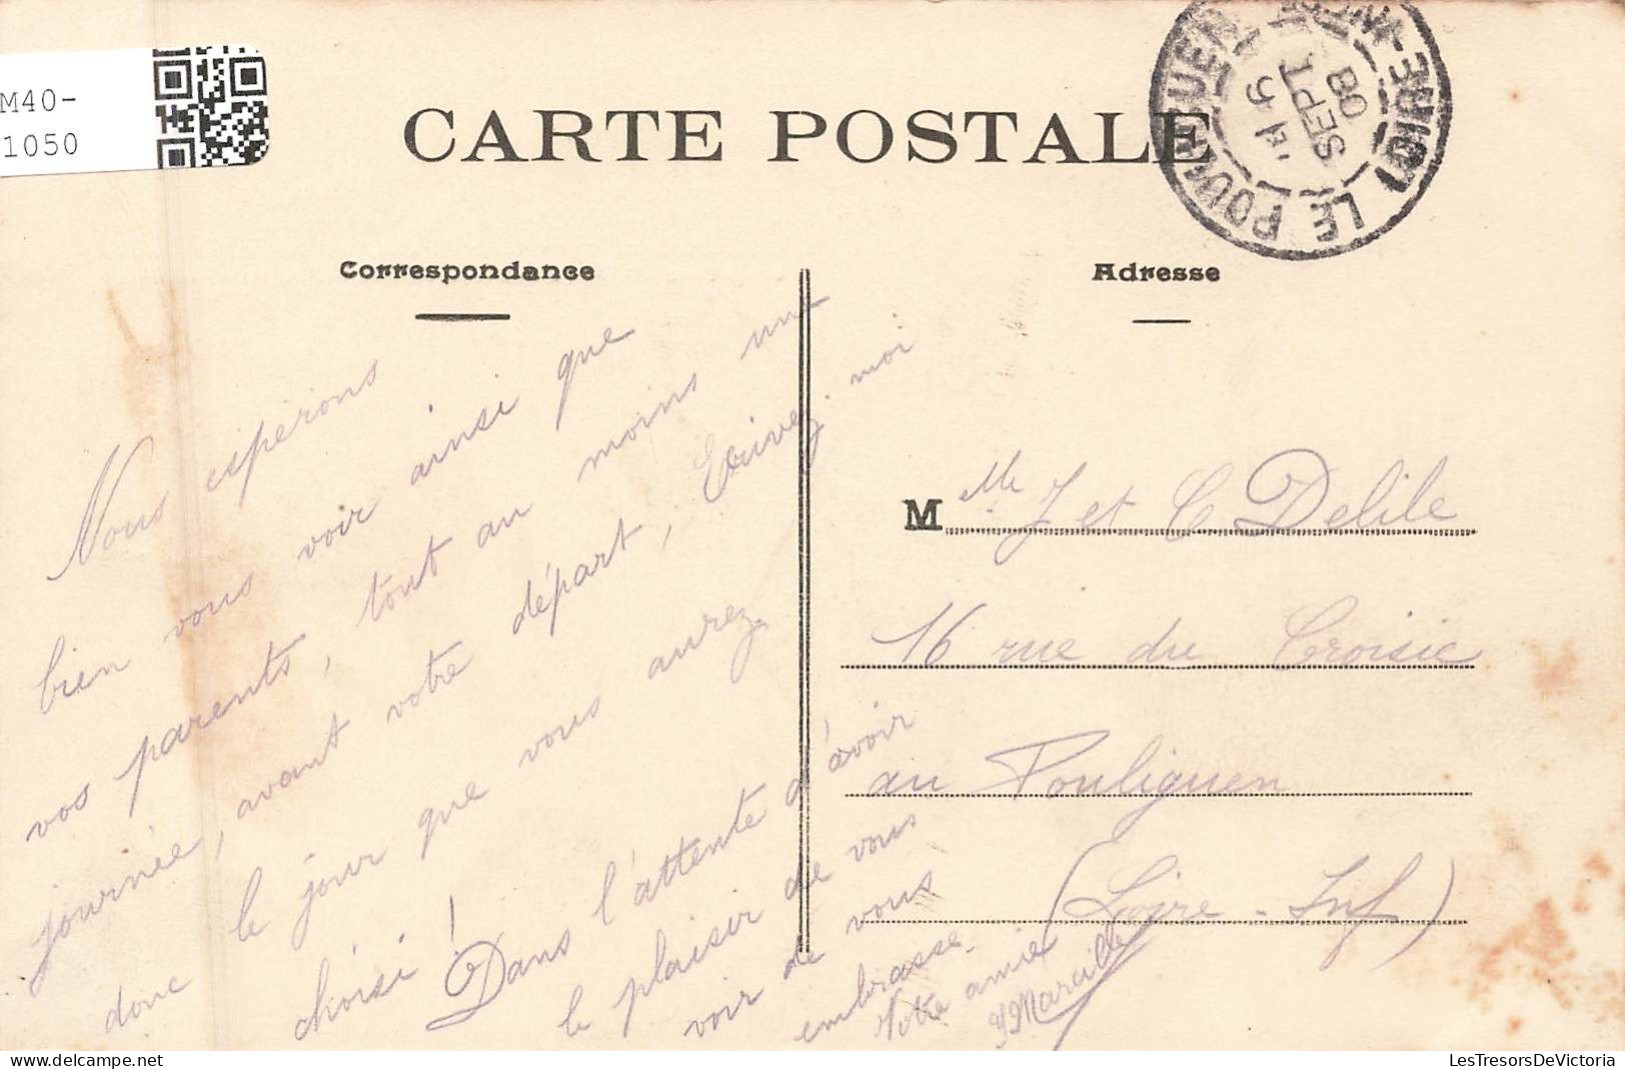 M40-
1050
CARTE POSTALE
LE POULIGUEN
LOIRE-INF
9
SEPT
08
Correspondance
Adresse
Nous espérons
bien vous voir ainsi que
vos parents, tout au moins un
journée, avant votre départ, Ecrivez-moi
donc le jour que vous aurez
choisi! Dans l'attente d'avoir
le plaisir de vous
voir de vous
embrasse.
Votre amie
Melle J et C Delile
16 rue du Croisic
au Pouliguen
(Loire-Inf)
LesTresorsDeVictoria